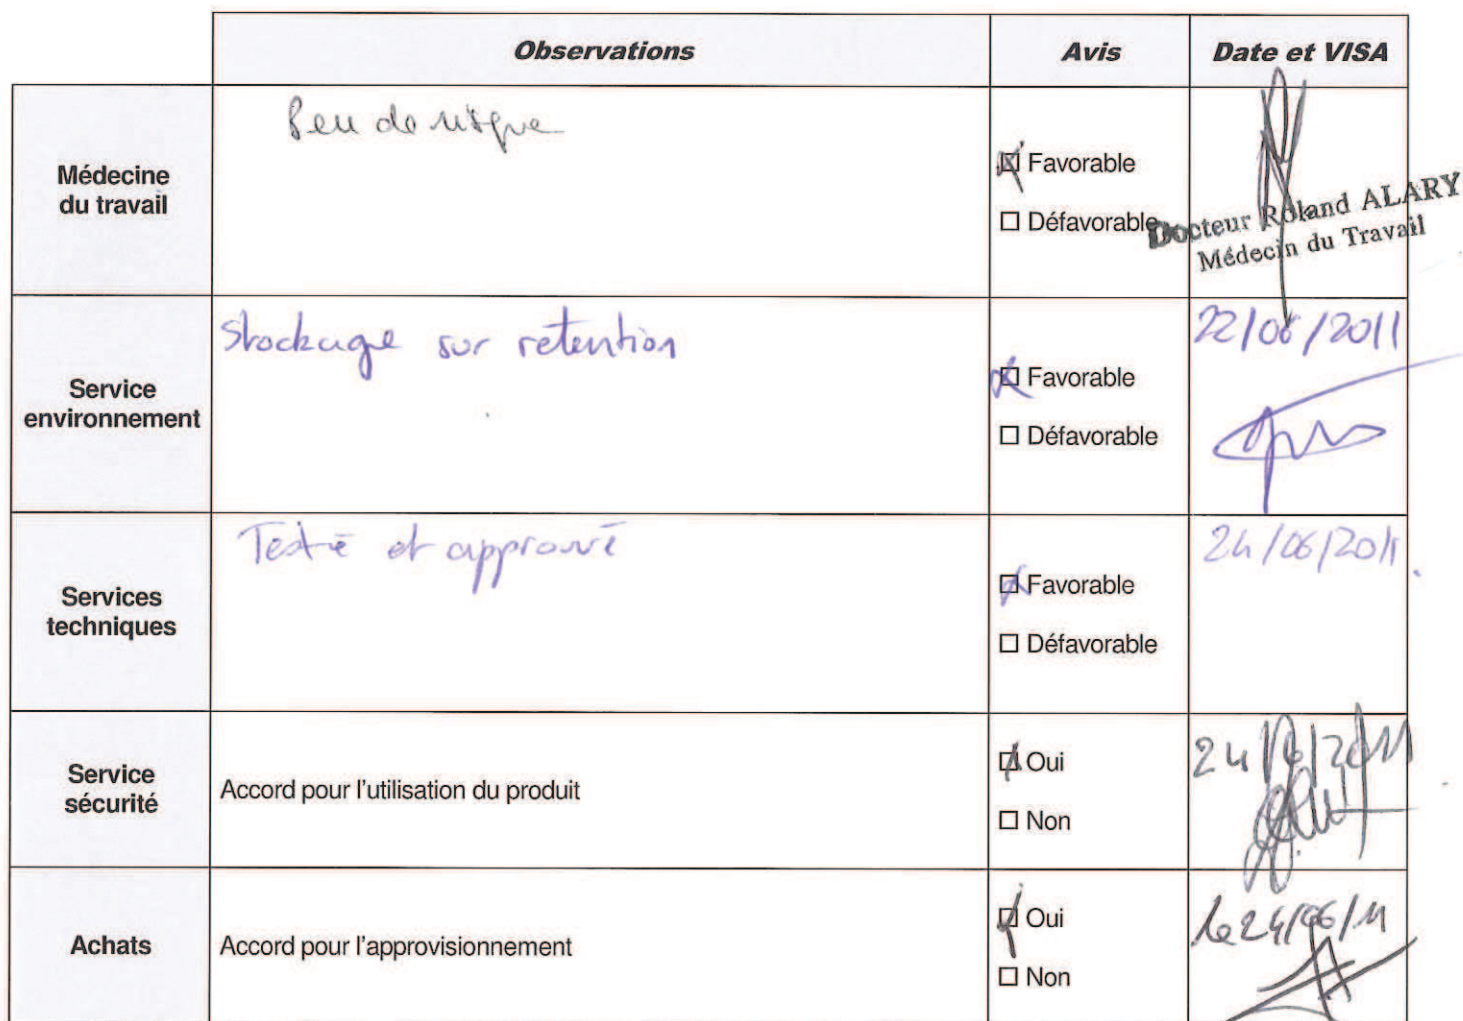 Observations Avis Date et VISA
Médecine
du travail
Peu de risque
Favorable
Défavorable
Docteur Roland ALARY
Médecin du Travail
Service
environnement
Stockage sur retention
Favorable
Défavorable
22/06/2011
Services
techniques
Testé et approuvé
Favorable
Défavorable
24/06/2011
Service
sécurité
Accord pour l'utilisation du produit
Oui
Non
24/6/2011
Achats
Accord pour l'approvisionnement
Oui
Non
le 24/06/11